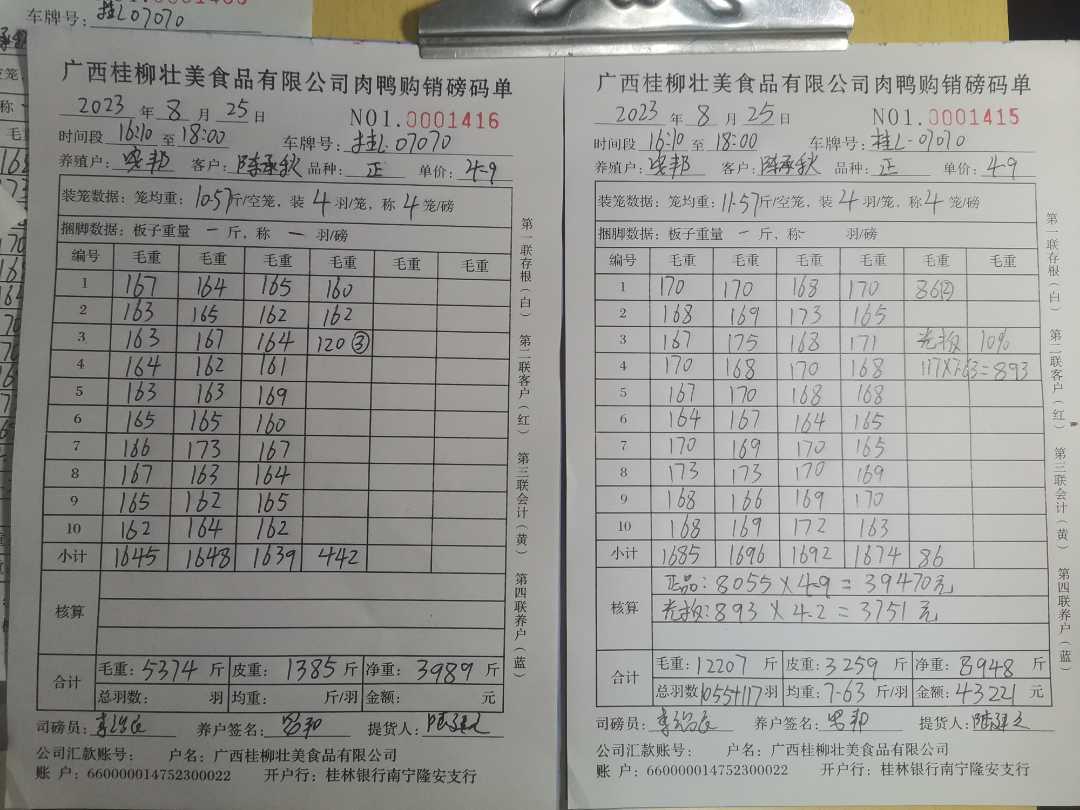 车牌号: 桂L07070
广西桂柳壮美食品有限公司肉鸭购销磅码单
2023 年 8 月 25 日 NO1.0001416
时间段 16:10 至 18:00 车牌号: 桂L·07070
养殖户: 客户: 陈承秋 品种: 正 单价: 4-9
装笼数据: 笼均重: 10-57斤/空笼, 装 4 羽/笼, 称 4 笼/磅
捆脚数据: 板子重量 一 斤, 称 一 羽/磅
编号 毛重 毛重 毛重 毛重 毛重 毛重
1 167 164 165 160
2 163 165 162 162
3 163 167 164 120 ③
4 164 162 161
5 163 163 169
6 165 165 160
7 166 173 167
8 167 163 164
9 165 162 165
10 162 164 162
小计 1645 1648 1639 442
核算
合计 毛重: 5374 斤 皮重: 1385 斤 净重: 3989 斤
总羽数: 羽 均重: 斤/羽 金额: 元
司磅员: 养户签名: 提货人:
公司汇款账号: 户名: 广西桂柳壮美食品有限公司
账 户: 660000014752300022 开户行: 桂林银行南宁隆安支行
第一联存根(白) 第二联客户(红) 第三联会计(黄) 第四联养户(蓝)
广西桂柳壮美食品有限公司肉鸭购销磅码单
2023 年 8 月 25 日 NO1.0001415
时间段 16:10 至 18:00 车牌号: 桂L·07070
养殖户: 客户: 陈承秋 品种: 正 单价: 4-9
装笼数据: 笼均重: 11-57斤/空笼, 装 4 羽/笼, 称 4 笼/磅
捆脚数据: 板子重量 一 斤, 称一 羽/磅
编号 毛重 毛重 毛重 毛重 毛重 毛重
1 170 170 168 170 86②
2 168 169 173 165
3 167 175 168 171 10%
4 170 168 170 168 117×7.63=893
5 167 170 168 168
6 164 167 164 165
7 170 169 170 165
8 173 173 170 169
9 168 166 169 170
10 168 169 172 163
小计 1685 1696 1692 1674 86
核算 正品: 8055 × 4-9 = 39470元
893 × 4-2 = 3751 元
合计 毛重: 12207 斤 皮重: 3259 斤 净重: 8948 斤
总羽数 1055+117羽 均重: 7-63 斤/羽 金额: 43221 元
司磅员: 养户签名: 提货人:
公司汇款账号: 户名: 广西桂柳壮美食品有限公司
账 户: 660000014752300022 开户行: 桂林银行南宁隆安支行
第一联存根(白) 第二联客户(红) 第三联会计(黄) 第四联养户(蓝)